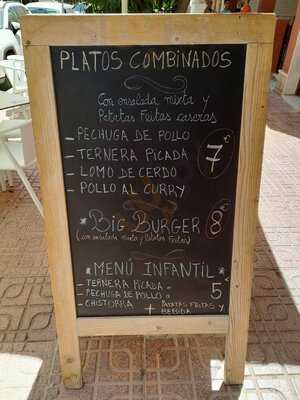 PLATOS COMBINADOS
Con ensalada mixta y
Patatas Fritas caseras
- PECHUGA DE POLLO
- TERNERA PICADA
- LOMO DE CERDO
- POLLO AL CURRY
7€
*BIG BURGER* 8€
(con ensalada mixta y Patatas Fritas)
*MENÚ INFANTIL*
- TERNERA PICADA o
- PECHUGA DE POLLO o
- CHISTORRA
5€
+ PATATAS FRITAS Y
BEBIDA